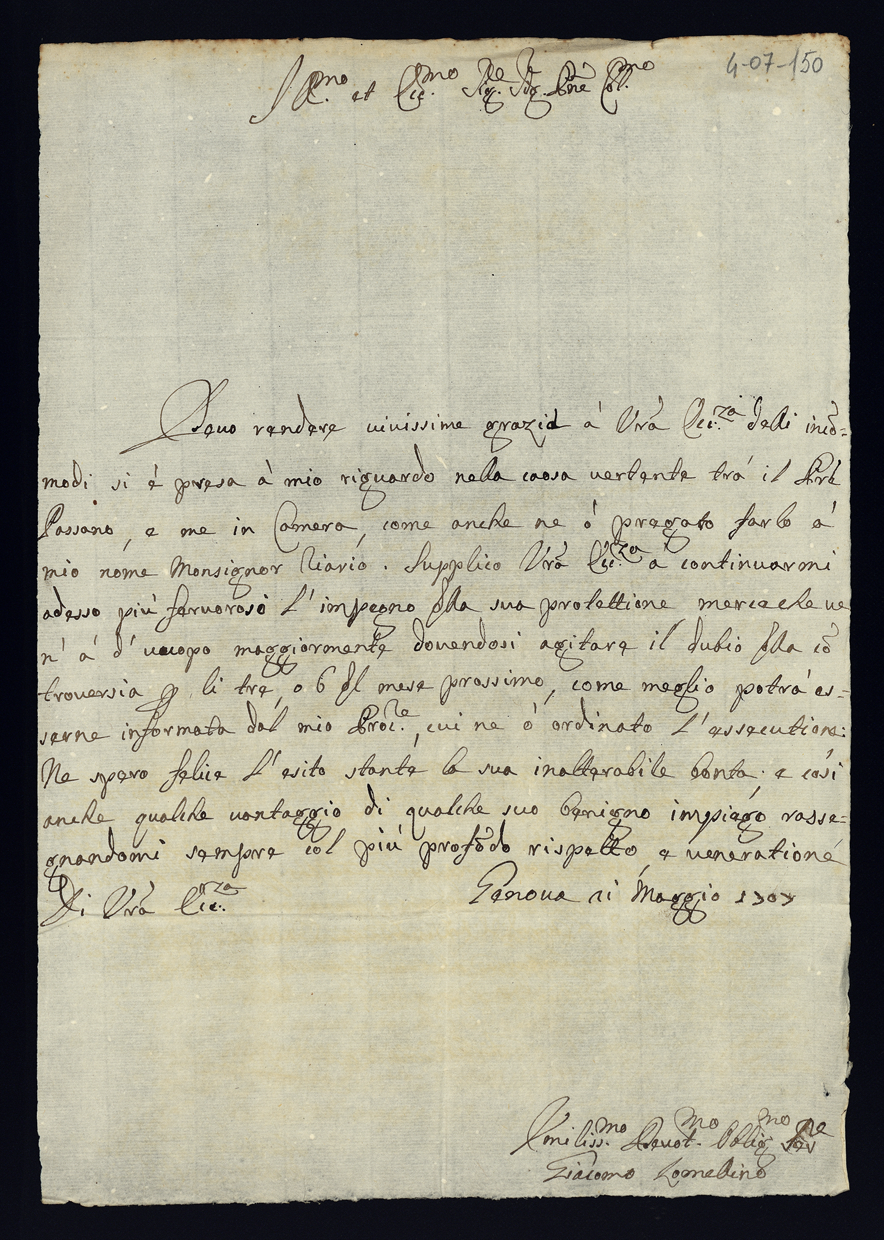 4-07-150
Ill.mo et Ecc.mo Sig.re Sig.re Prõne Col.mo
Devo rendere vivissime grazie à Vrã Ecc.za delli incõ=
modi si è presa à mio riguardo nella caosa vertente trà il
Passano, e me in Camera, come anche ne ò pregato farlo à
mio nome Monsignor Riario. Supplico Vrã Ecc.za à continuarmi
adesso più fervoroso l'impegno della sua protettione mercecche ve
n'à d'uuopo maggiormente dovendosi agitare il dubio della cõ
troversia p li tre, o 6 del mese prossimo, come meglio potrà es=
serne informata dal mio Proc.re, cui ne ò ordinato l'essecutione:
Ne spero felice l'esito stante la sua inalterabile bontà e così
anche qualche vantaggio di qualche suo benigno impiego rasse=
gnandomi sempre col più profõdo rispetto, e veneratione
Di Vrã Ecc.za Genova 21 Maggio 1707
Umiliss.mo Devot.mo Oblig.mo Ser.re
Giacomo Lomellino